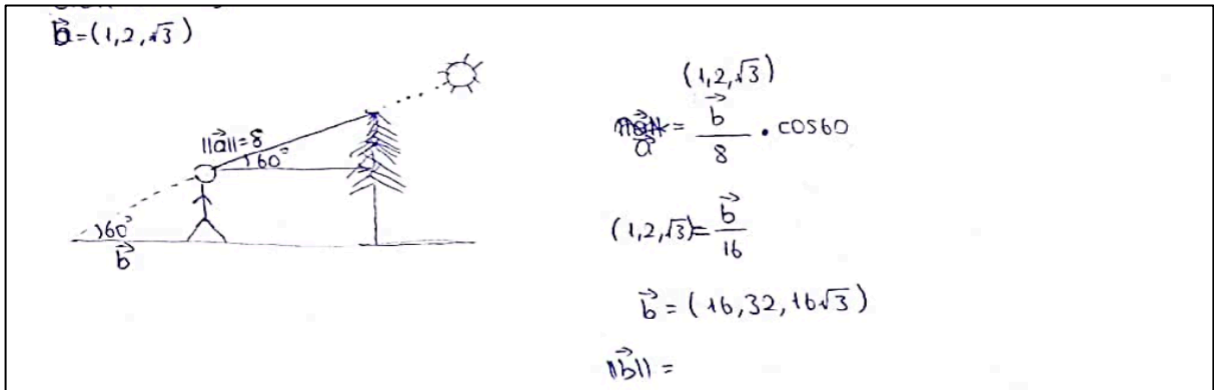 b⃗=(1,2,√3)
||a⃗||=8
60°
60°
b⃗
(1,2,√3)
a⃗ = b⃗/8 · cos60
(1,2,√3)= b⃗/16
b⃗ = (16,32,16√3)
||b⃗|| =